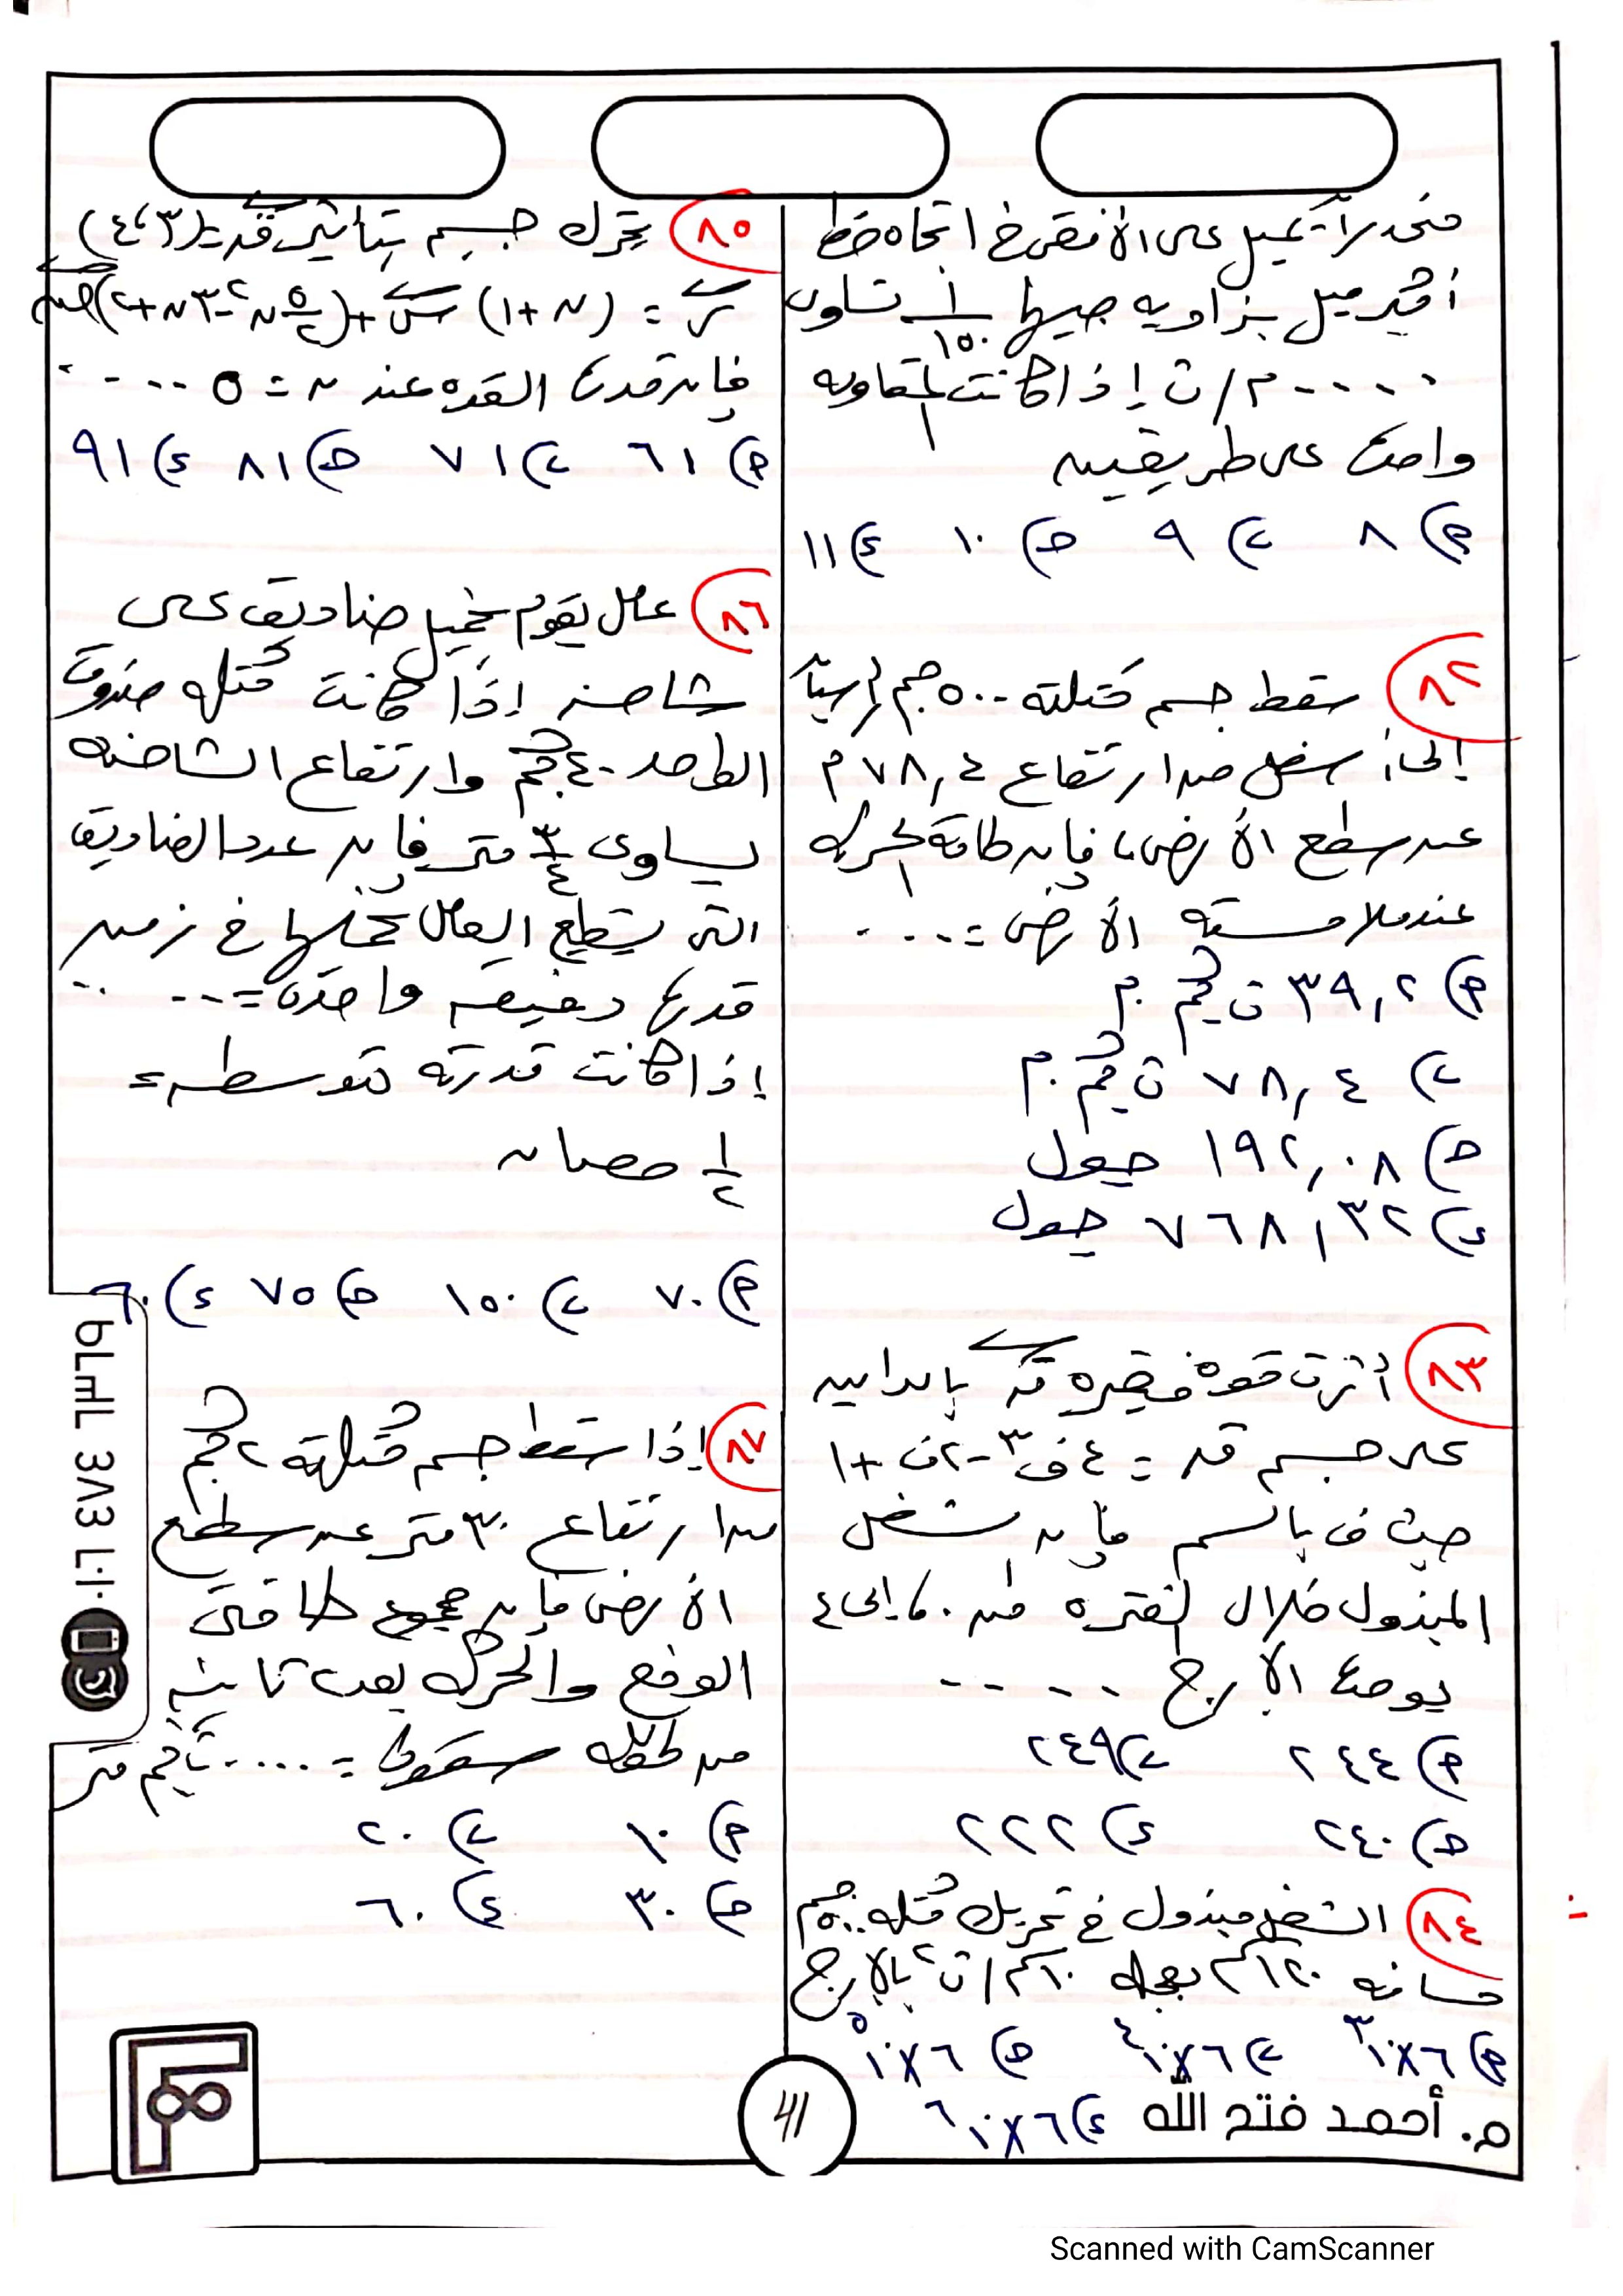 منحدراً يميل على الأفقى فى اتجاه خط
أكبر ميل بزاوية جيبها ١/١٥٠ تساوى
..... م/ث إذا كانت المقاومة
واحدة على طريقين
أ) ٨ ب) ٩ حـ) ١٠ د) ١١
٨٢ سقط جسم كتلته ٥٠٠ جم رأسياً
إلى أسفل من ارتفاع ٧٨,٤ م
عن سطح الأرض، فإن طاقة الحركة
عند ملامسته الأرض = ....
أ) ٣٩,٢ ث كجم . م
ب) ٧٨,٤ ث كجم . م
حـ) ١٩٢,٠٨ جول
د) ٧٦٨,٣٢ جول
٨٣ أثرت قوة متغيرة ق بالداين
على جسم ق = ٤ف٣ - ٢ف + ١
حيث ف بالسم فإن الشغل
المبذول خلال الفترة من ٠ إلى ٤
بوحدة الإرج .....
أ) ٢٤٤ ب) ٢٤٩
حـ) ٢٤٠ د) ٢٢٢
٨٤ الشغل مبذول فى تحريك كتلة ٥٠٠ جم
مسافة ١٢٠سم بعجلة ١٠سم/ث٢ بالإرج
أ) ٦×١٠^٣ ب) ٦×١٠^٤ حـ) ٦×١٠^٥
د) ٦×١٠^٦
٨٥ يتحرك جسم بتأثير ق = (٣، ٤)
ر = (ن + ١) س + (٥/٢ ن٢ - ٣ن + ٢) ص
فإن قدرة القوة عند ن = ٥ ....
أ) ٦١ ب) ٧١ حـ) ٨١ د) ٩١
٨٦ عامل يقوم بتحميل صناديق على
شاحنة إذا كانت كتلة صندوق
الواحد ٤٠ كجم وارتفاع الشاحنة
يساوى ٣/٤ متر فإن عدد الصناديق
التى يستطيع العامل تحملها فى زمن
قدرة دقيقة واحدة = ....
إذا كانت قدرته متوسطه =
١/٢ حصان
أ) ٧٠ ب) ١٥٠ حـ) ٧٥ د) ٦٠
٨٧ إذا سقط جسم كتلته ٢ كجم
من ارتفاع ٣٠ متر عن سطح
الأرض فإن مجموع طاقتى
الوضع والحركة بعد ثانية
من لحظة سقوط = .... ث كجم متر
أ) ١٠ ب) ٢٠
حـ) ٣٠ د) ٦٠
م. أحمد فتح الله
٤١
Scanned with CamScanner